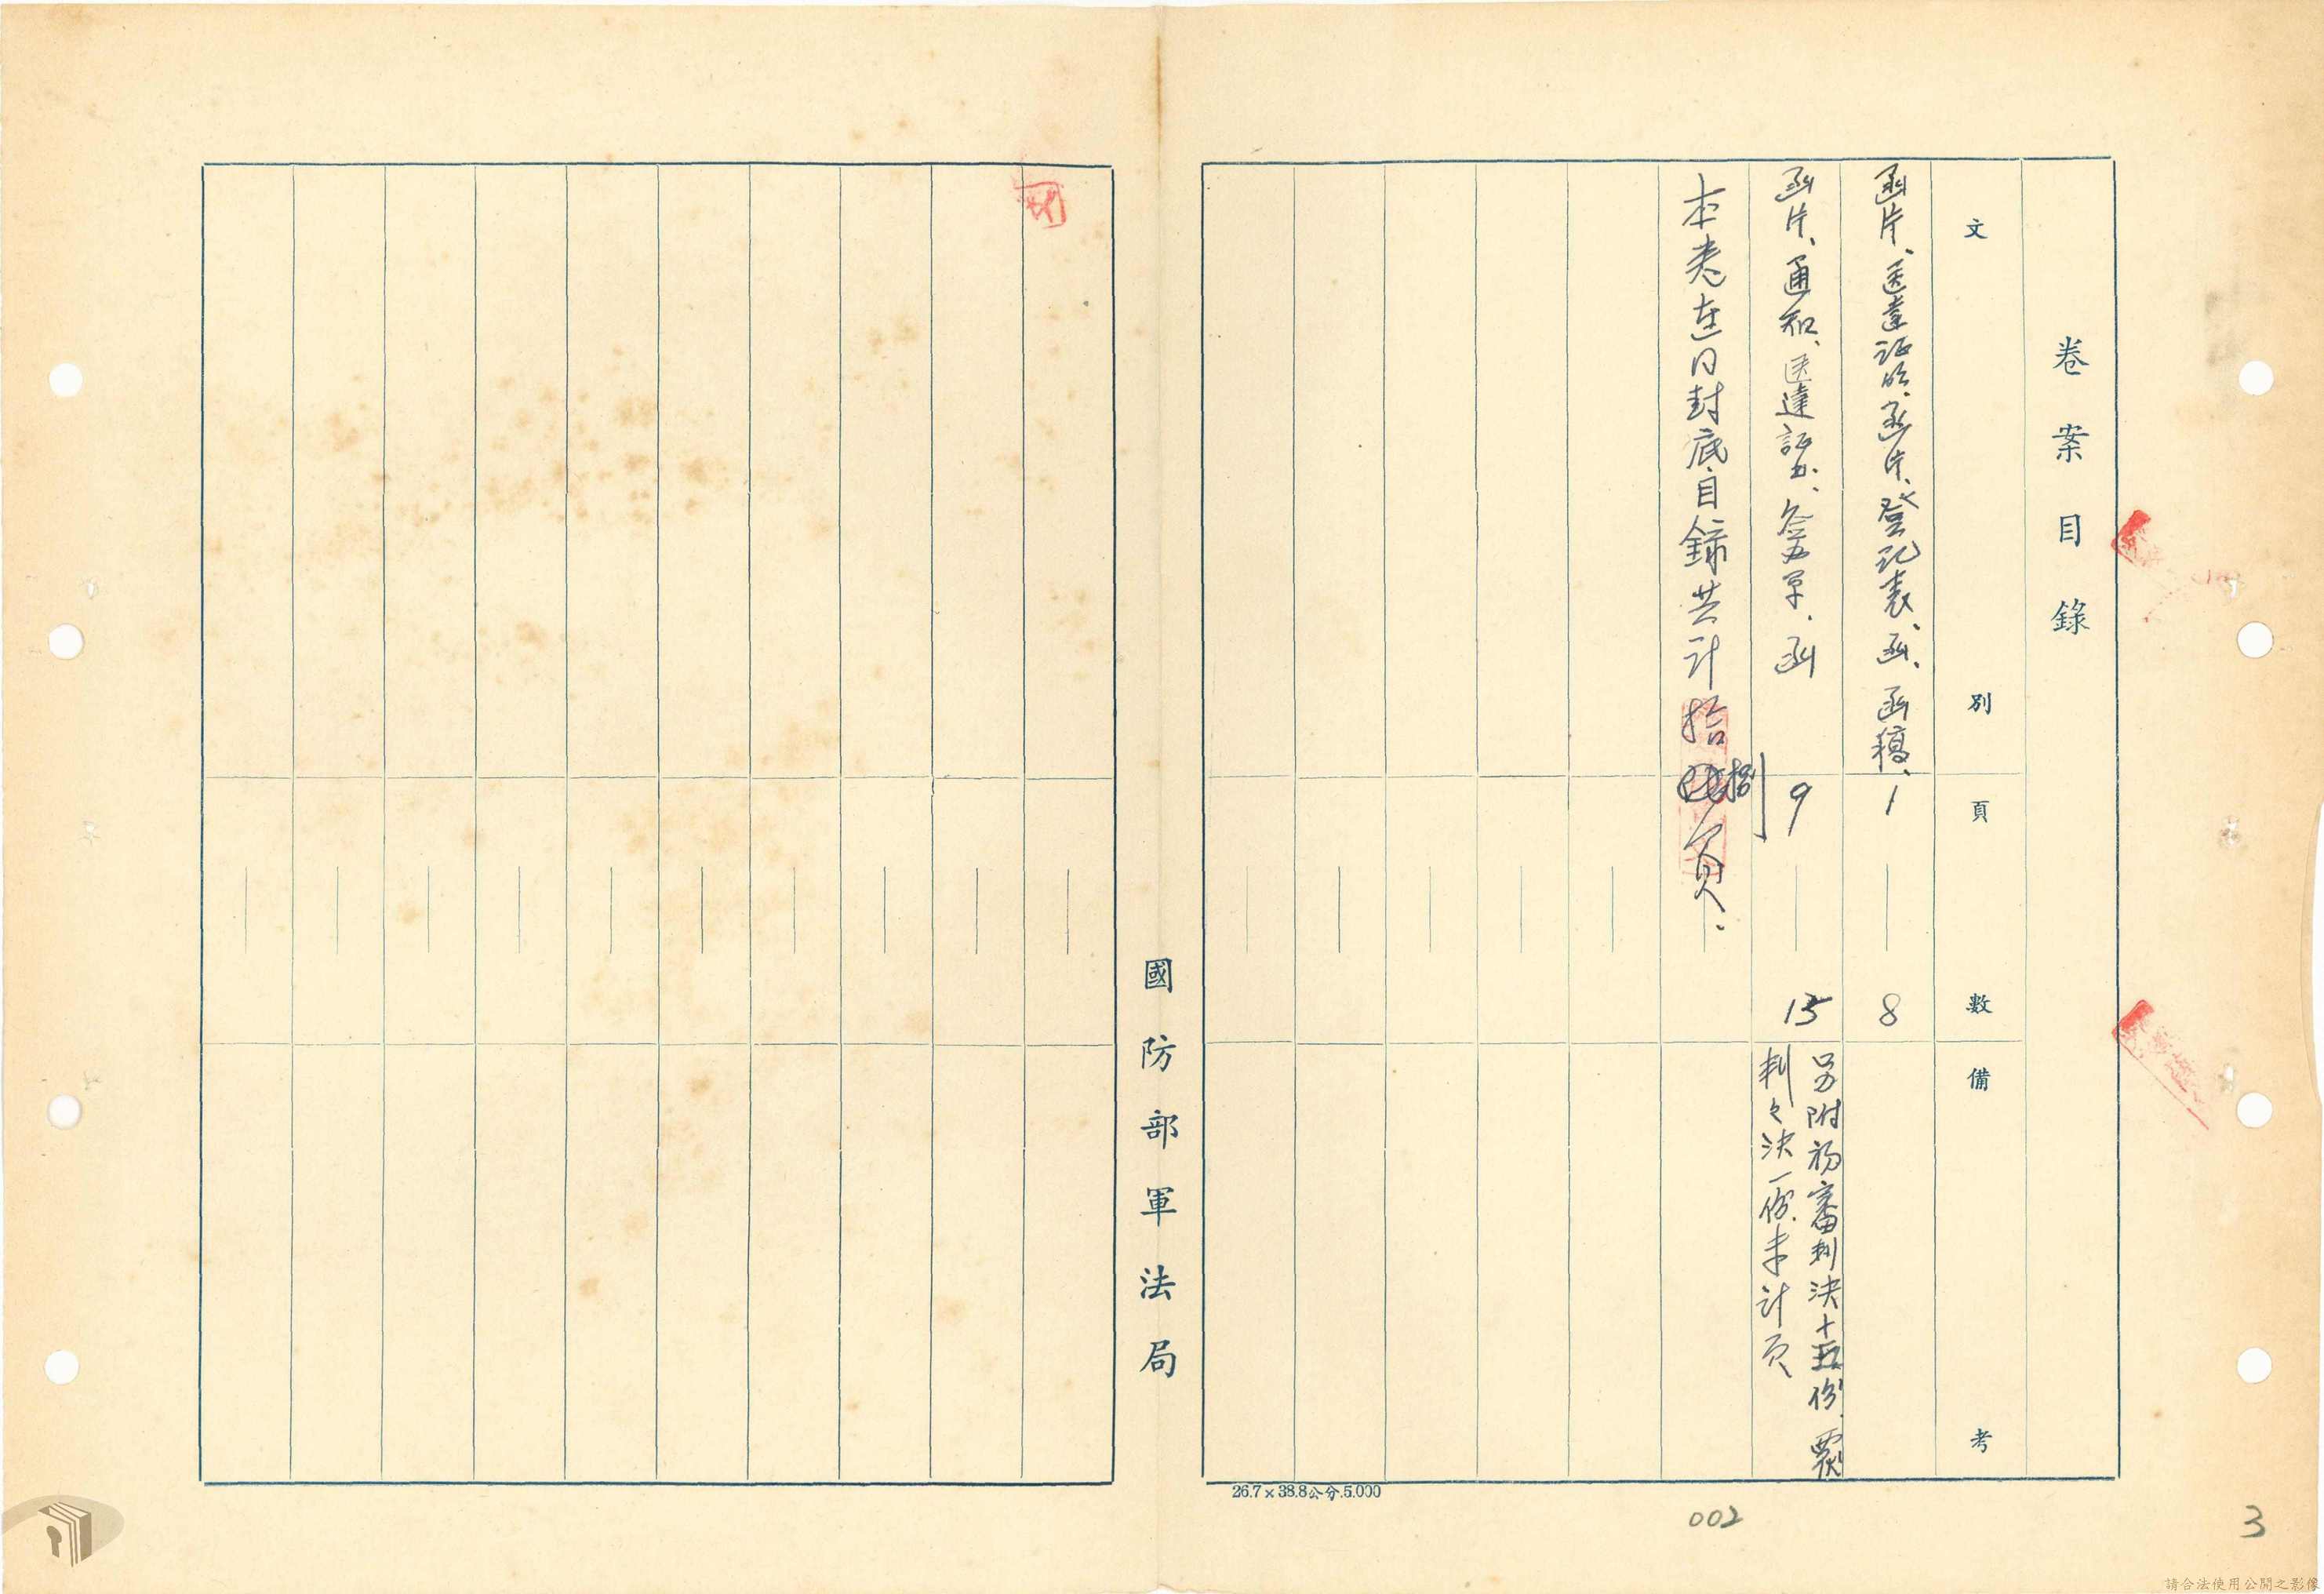 卷案目錄
文別
頁數
備考
函片、送達証明、函片、登記表、函、函稿、
1
8
函片、通知、送達証书、签办单、函
9
15
另附初審判決十五份、覆
判之決一份未計頁
本卷连同封底、目錄共计拾捌頁.
國防部軍法局
26.7×38.8公分.5.000
002
3
請合法使用公開之影像